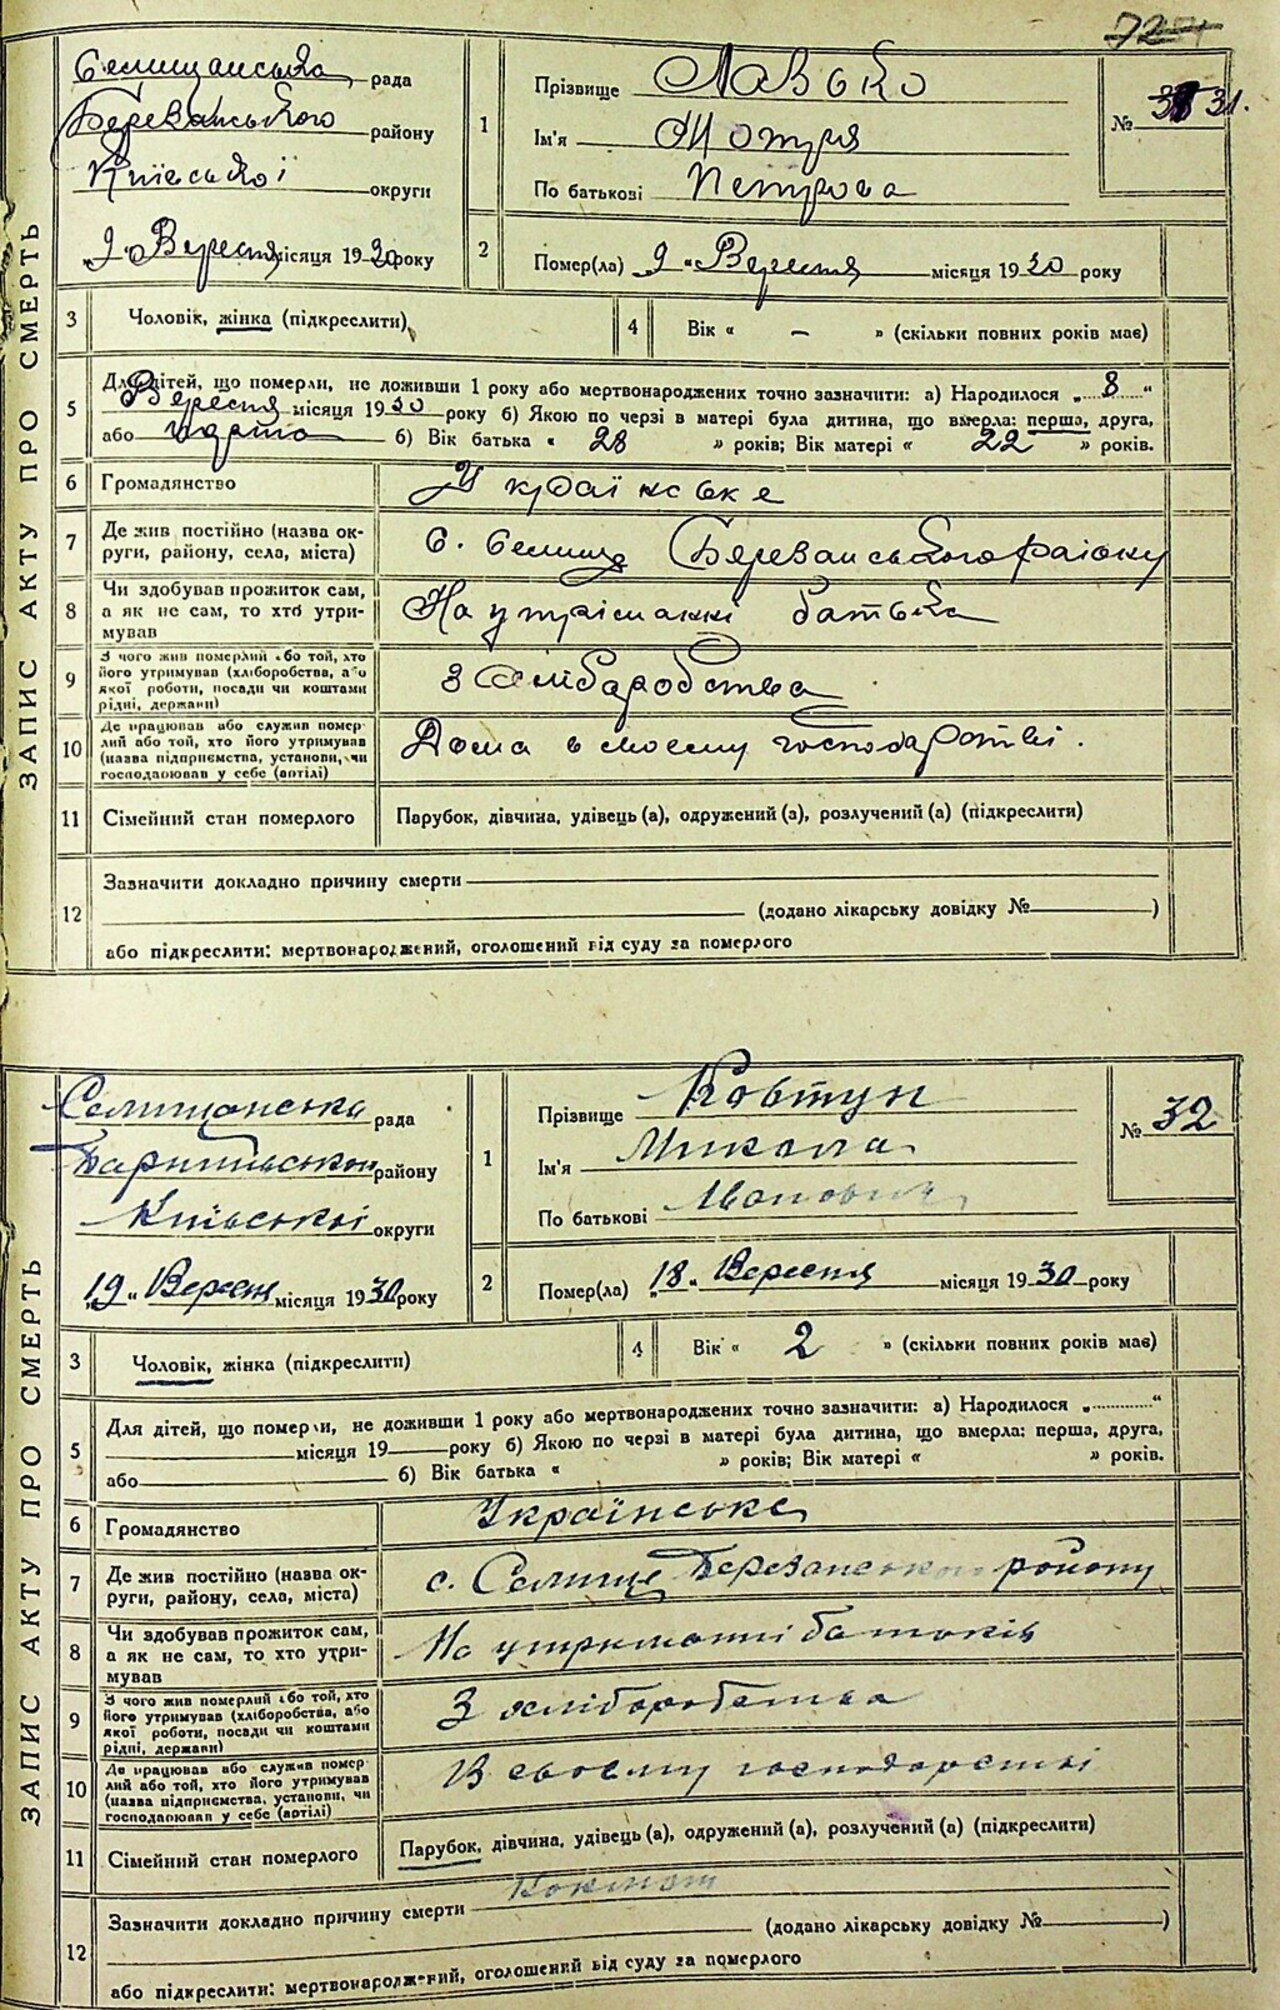 72
ЗАПИС АКТУ ПРО СМЕРТЬ
Селищанська рада
Березанського району
Київської округи
„9“ Вересня місяця 1930 року
1
Прізвище Лавько
Ім'я Мотря
По батькові Петрова
№ 31.
2
Помер(ла) 9 „ Вересня місяця 1930 року
3 Чоловік, жінка (підкреслити)
4 Вік « — » (скільки повних років має)
5 Для дітей, що померли, не доживши 1 року або мертвонароджених точно зазначити: а) Народилося „ 8 “
Вересня місяця 1930 року б) Якою по черзі в матері була дитина, що вмерла: перша, друга,
або 6) Вік батька « 28 » років; Вік матері « 22 » років.
6 Громадянство Українське
7 Де жив постійно (назва ок-
руги, району, села, міста) С. Селище Березанського району
8 Чи здобував прожиток сам,
а як не сам, то хто утри-
мував На утріманні батька
9 З чого жив померлий або той, хто
його утримував (хліборобства, або
якої роботи, посади чи коштами
рідні, держави) З хліборобства
10 Де працював або служив помер-
лий або той, хто його утримував
(назва підприємства, установи, чи
господарював у себе (артілі) Дома в своєму господарстві.
11 Сімейний стан померлого Парубок, дівчина, удівець (а), одружений (а), розлучений (а) (підкреслити)
12 Зазначити докладно причину смерти
(додано лікарську довідку № )
або підкреслити: мертвонароджений, оголошений від суду за померлого
ЗАПИС АКТУ ПРО СМЕРТЬ
Селищанська рада
району
Київської округи
„19“ Вересня місяця 1930 року
1
Прізвище Ковтун
Ім'я Микола
По батькові Іванович
№ 32
2
Помер(ла) „18“ Вересня місяця 1930 року
3 Чоловік, жінка (підкреслити)
4 Вік « 2 » (скільки повних років має)
5 Для дітей, що померли, не доживши 1 року або мертвонароджених точно зазначити: а) Народилося „ “
місяця 19 року б) Якою по черзі в матері була дитина, що вмерла: перша, друга,
або 6) Вік батька « » років; Вік матері « » років.
6 Громадянство Українське
7 Де жив постійно (назва ок-
руги, району, села, міста) с. Селище Березанського району
8 Чи здобував прожиток сам,
а як не сам, то хто утри-
мував На утриманні батьків
9 З чого жив померлий або той, хто
його утримував (хліборобства, або
якої роботи, посади чи коштами
рідні, держави) З хліборобства
10 Де працював або служив помер-
лий або той, хто його утримував
(назва підприємства, установи, чи
господарював у себе (артілі) В своєму господарстві
11 Сімейний стан померлого Парубок, дівчина, удівець (а), одружений (а), розлучений (а) (підкреслити)
12 Зазначити докладно причину смерти
(додано лікарську довідку № )
або підкреслити: мертвонароджений, оголошений від суду за померлого